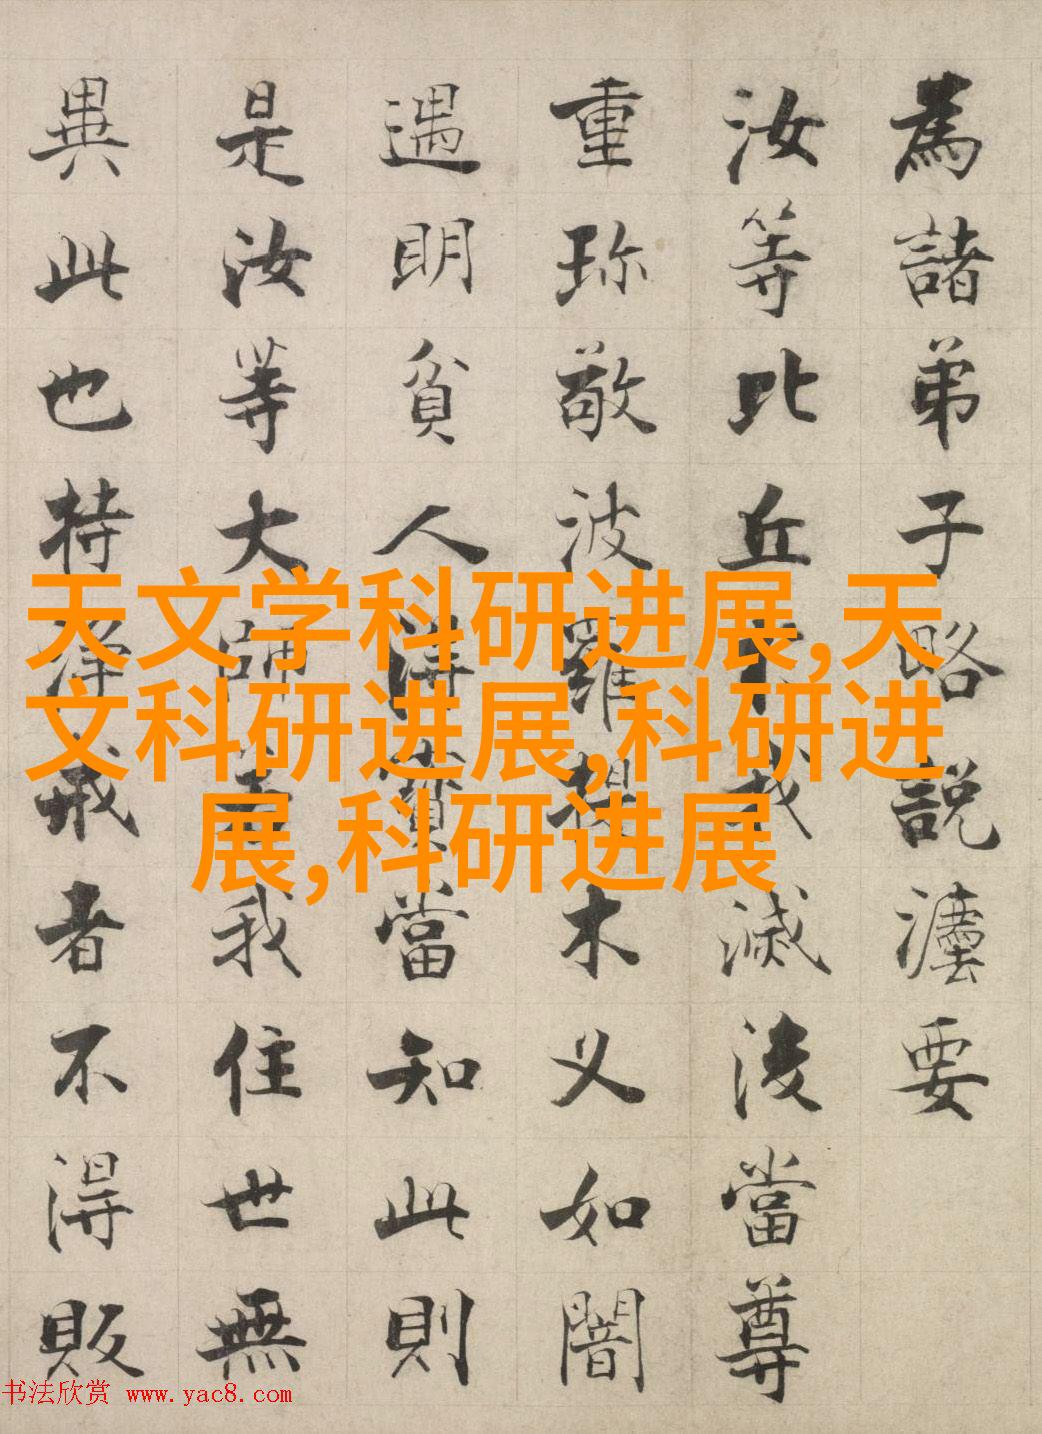 為諸弟子略説灋要
汝等比丘我滅後當尊
重珎敬波羅提木叉如闇
遇明貧人得寶當知此則
是汝等大師若我住世無
異此也持淨戒者不得販
天文学科研进展,天
文科研进展,科研进
展,科研进展
书法欣赏 www.yac8.com